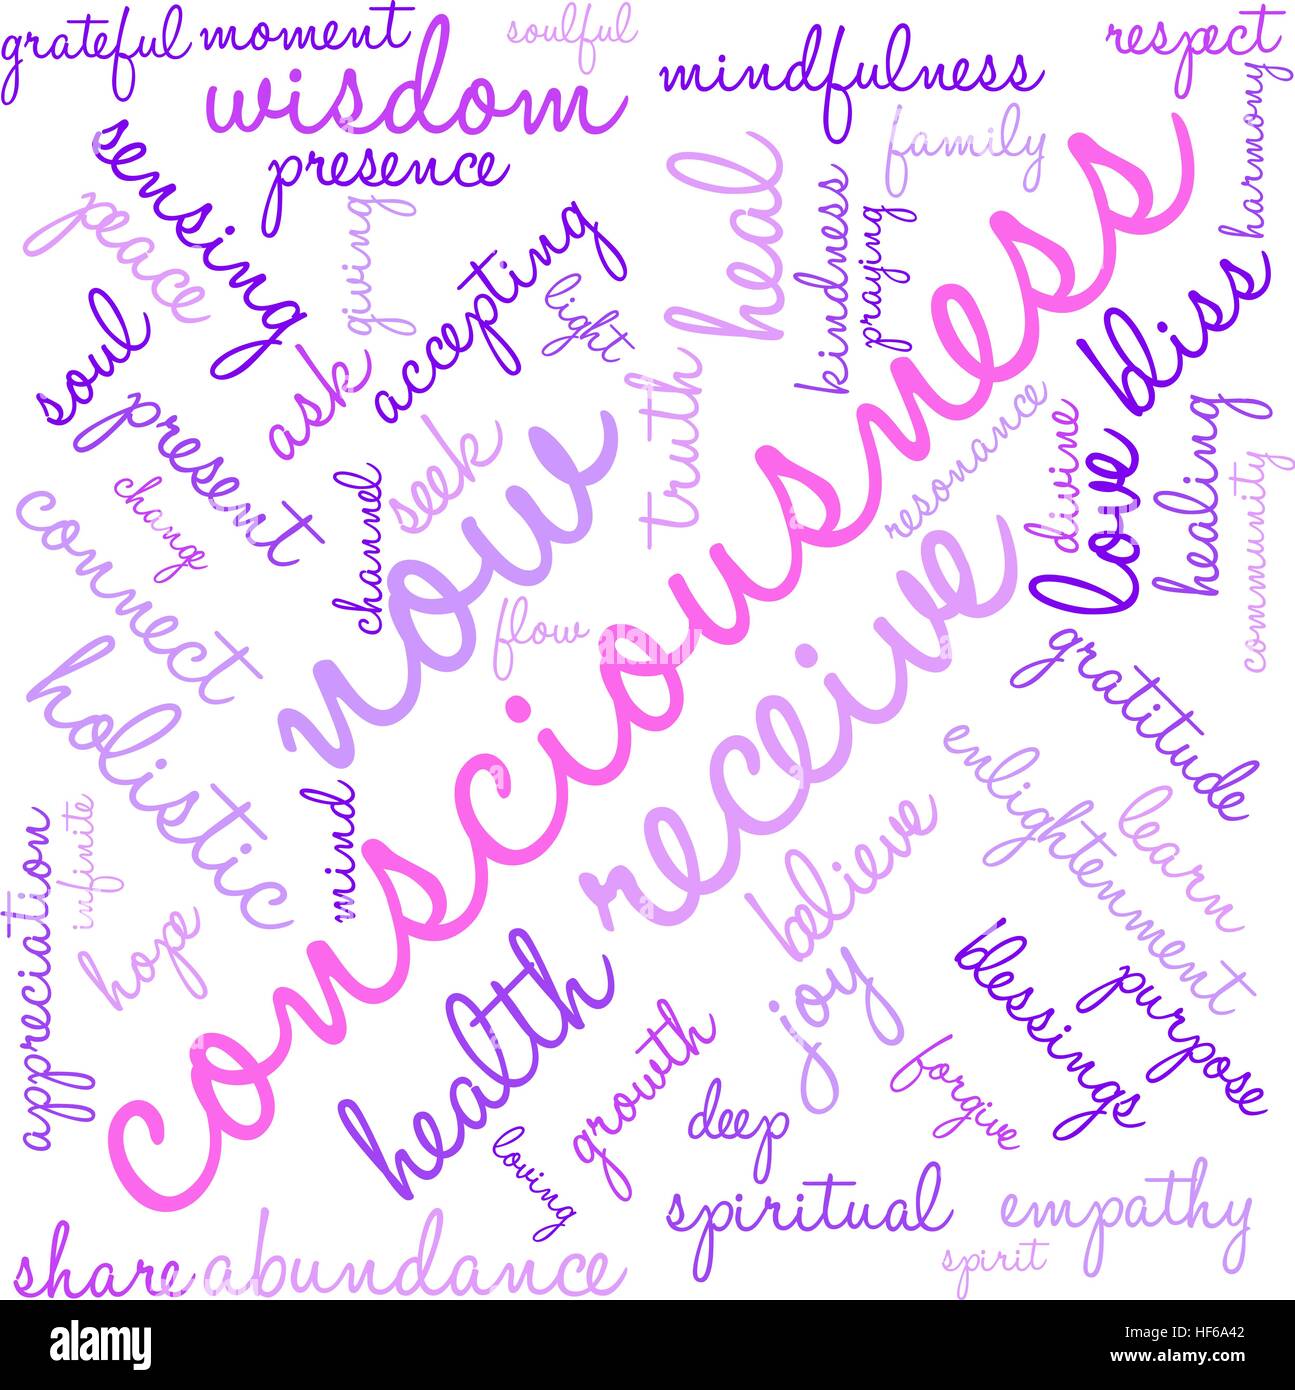 grateful
moment
soulful
respect
wisdom
mindfulness
harmony
sensing
presence
family
peace
giving
accepting
heal
kindness
praying
light
consciousness
bliss
soul
ask
truth
present
seek
now
resonance
divine
love
healing
community
change
channel
connect
flow
receive
gratitude
holistic
enlightenment
mind
learn
believe
appreciation
infinite
hope
health
joy
blessings
purpose
growth
forgive
deep
loving
spiritual
empathy
spirit
share
abundance
a
a
a
a
alamy
Image ID: HF6A42
www.alamy.com